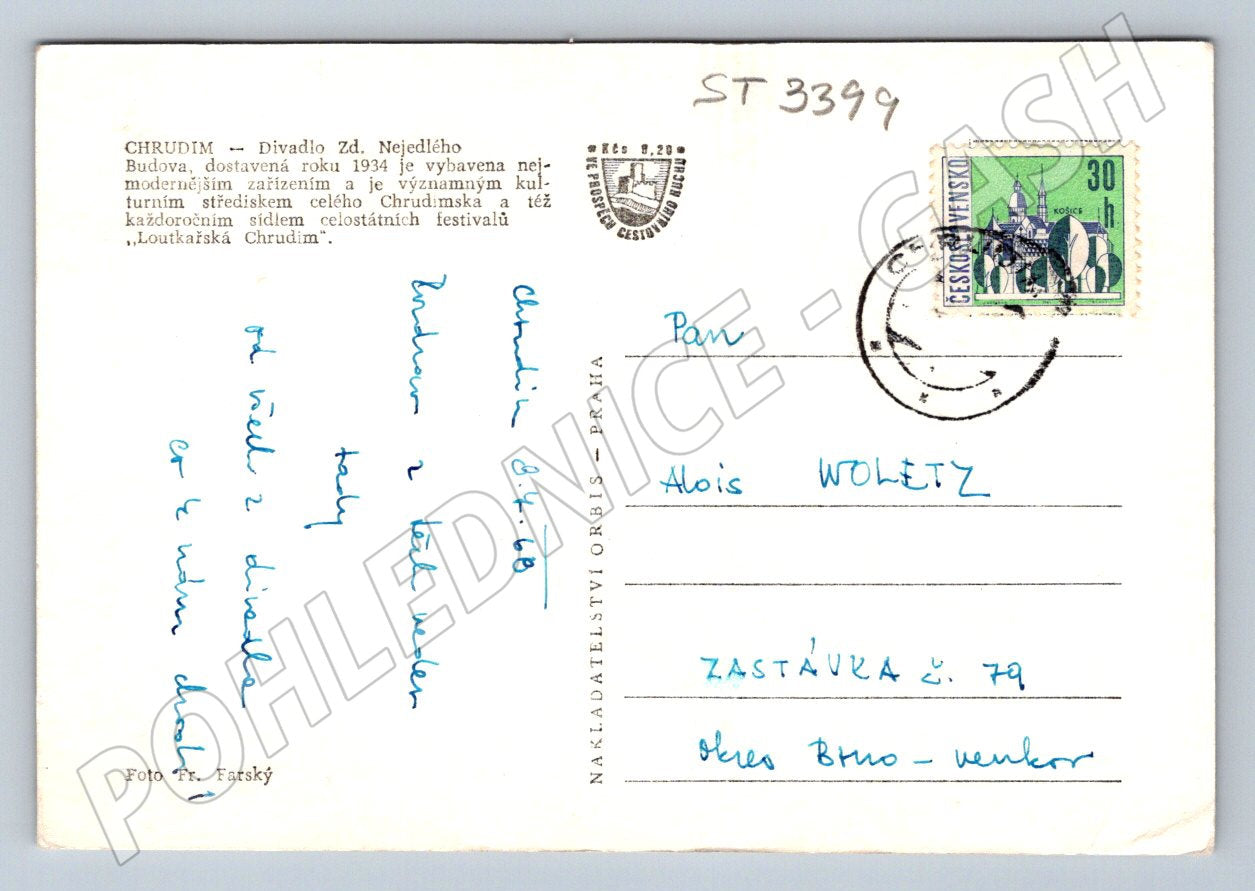 ST 3399
CHRUDIM — Divadlo Zd. Nejedlého
Budova, dostavená roku 1934 je vybavena nej-
modernějším zařízením a je významným kul-
turním střediskem celého Chrudimska a též
každoročním sídlem celostátních festivalů
„Loutkařská Chrudim".
Kčs 0,20
VE PROSPĚCH CESTOVNÍHO RUCHU
ČESKOSLOVENSKO
30 h
KOŠICE
Chrudim 8.4.68
Pozdrav z
tady
od všech z divadla
co k nám chodí
NAKLADATELSTVÍ ORBIS — PRAHA
Pan
Alois WOLETZ
ZASTÁVKA č. 79
okres Brno - venkov
Foto Fr. Farský
POHLEDNICE - GASH